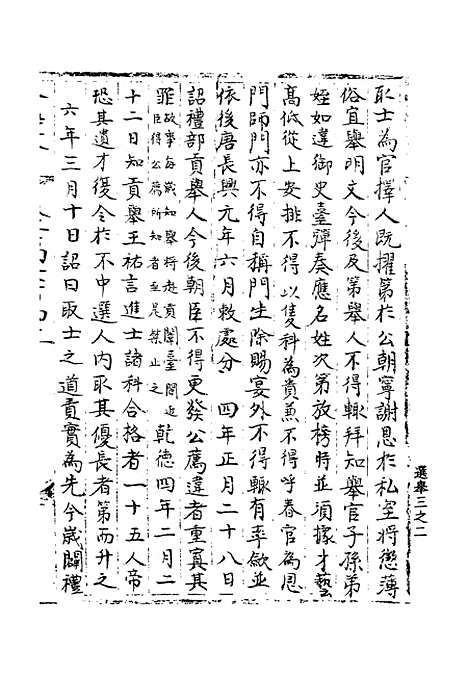 取士為官擇人既擢第於公朝寧謝恩於私室將懲薄
俗宜舉明文今後及第舉人不得輒拜知舉官子孫弟
姪如違御史臺彈奏應名姓次第放榜時並須據才藝
高低從上安排不得以隻科為貴兼不得呼春官為恩
門師門亦不得自稱門生除賜宴外不得輒有率斂並
依後唐長興元年六月敕處分 四年正月二十八日
詔禮部貢舉人今後朝臣不得更發公薦違者重寘其
罪故事每歲知舉將赴貢闈臺閣近臣得公薦所知者至是禁止之 乾德四年二月二
十二日知貢舉王祐言進士諸科合格者一十五人帝
恐其遺才復令於不中選人內取其優長者第而升之
六年三月十日詔曰取士之道責實為先今歲闢禮
選舉三之二